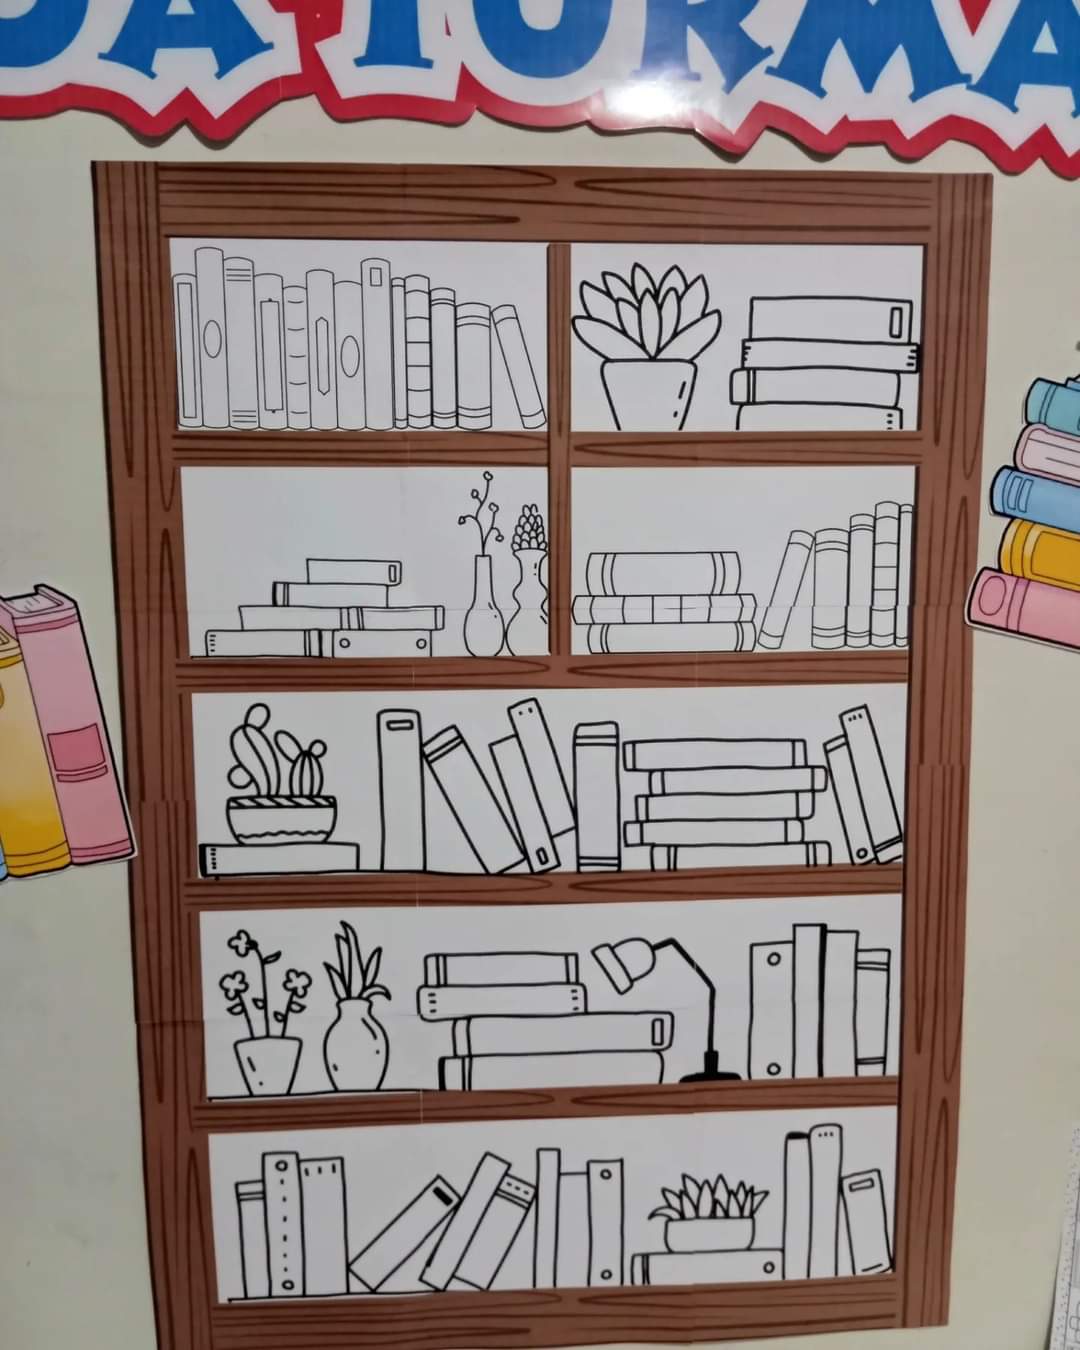 DA TURMA